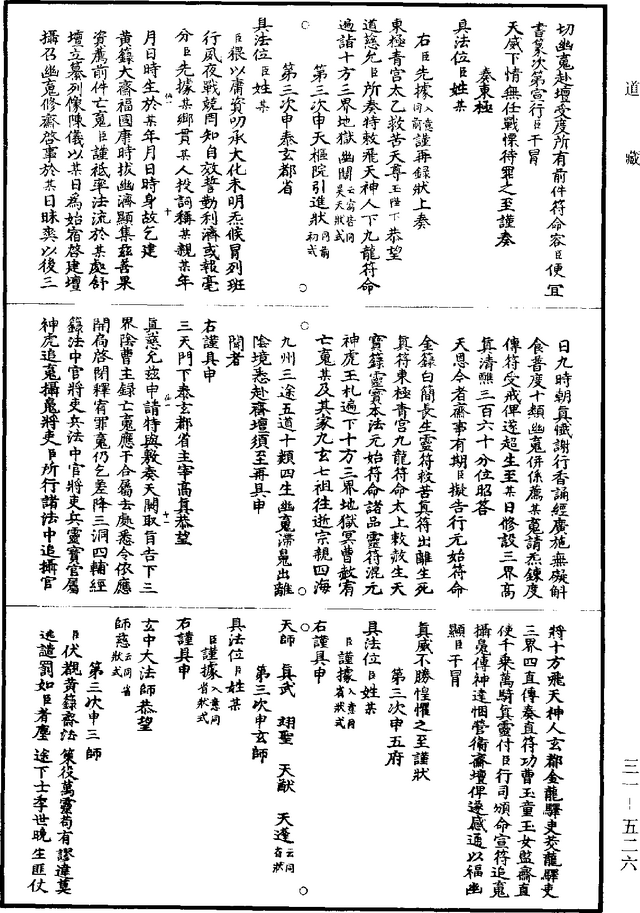 道藏
切幽䰟赴壇受度所有前件符命容臣便宜
書篆次第宣行臣干冒
天威下情無任戰慄待罪之至謹奏
奏東極
具法位臣姓某
右臣先據入意同前謹再録狀上奏
東極青宫太乙救苦天尊玉陛下恭望
道慈允臣所奏特敕飛天神人下九龍符命
遍詣十方三界地獄幽關云云皆同昊天狀式
第三次申天樞院引進狀同前初式
第三次申泰玄都省
具法位臣姓某
臣猥以庸資叨承大化未明炁候冐列班
行夙夜戰兢罔知自效誓勤利濟或報毫
分臣先據某鄉貫某人投詞稱某親某年
月日時生於某年月日時身故乞建
黃籙大齋福國康時拔幽濟顯集兹善果
資薦前件亡䰟臣謹祗率法流於某處舒
壇立纂列像陳儀以某日為始宿啓建壇
攝召幽䰟修齋啓事於某日昧爽以後三
日九時朝真懺謝行香誦經廣施無礙斛
食普度十類幽䰟併係薦某䰟請炁鍊度
傳符受戒俾遂超生至某日修設三界高
真清醮三百六十分位昭荅
天恩今者齋事有期臣擬告行元始符命
金籙白簡長生靈符救苦真符出離生死
真符東極青宫九龍符命太上敕赦生天
寳籙靈寳本法元始符命諸品靈符混元
神虎玉札遍下十方三界地獄冥曹赦宥
亡䰟某及其家九玄七祖往逝宗親四海
九州三途五道十類四生幽䰟滯魄出離
陰境悉赴齋壇須至再具申
聞者
右謹具申
三天門下泰玄都省主宰高真恭望
真慈允兹申請特與敷奏天闕取旨告下三
界陰曹主録亡䰟應干合屬去處悉令依應
開扃啓閉釋宥罪䰟仍乞差降三洞四輔經
籙法中官將吏兵法中官將吏兵靈寳官屬
神虎追䰟攝䰟將吏臣所行諸法中追攝官
將十方飛天神人玄都金龍驛吏茭龍驛吏
三界四直傳奏直符功曹玉童玉女監齋直
使千乘萬騎真靈付臣行司頒命宣符追䰟
攝魄傳神達悃營衛齋壇俾遂感通以福幽
顯臣干冒
真威不勝惶懼之至謹狀
第三次申五府
具法位臣姓某
臣謹據入意同省狀式
右謹具申
天師 真武 翊聖 天猷 天蓬云同省狀
第三次申玄師
具法位臣姓某
臣謹據入意同省狀式
右謹具申
玄中大法師恭望
師慈云同省狀式
第三次申三師
臣伏覩黃籙齋法 策役萬靈苟有謬違莫
逃譴罰如臣者塵 途下士季世晚生匪仗
三一－五二六